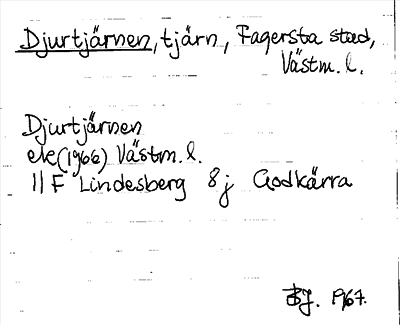 Djurtjärnen, tjärn, Fagersta stad,
Västm. l.
Djurtjärnen
ek (1966) Västm. l.
11 F Lindesberg 8 j Godkärra
BJ. 1967.